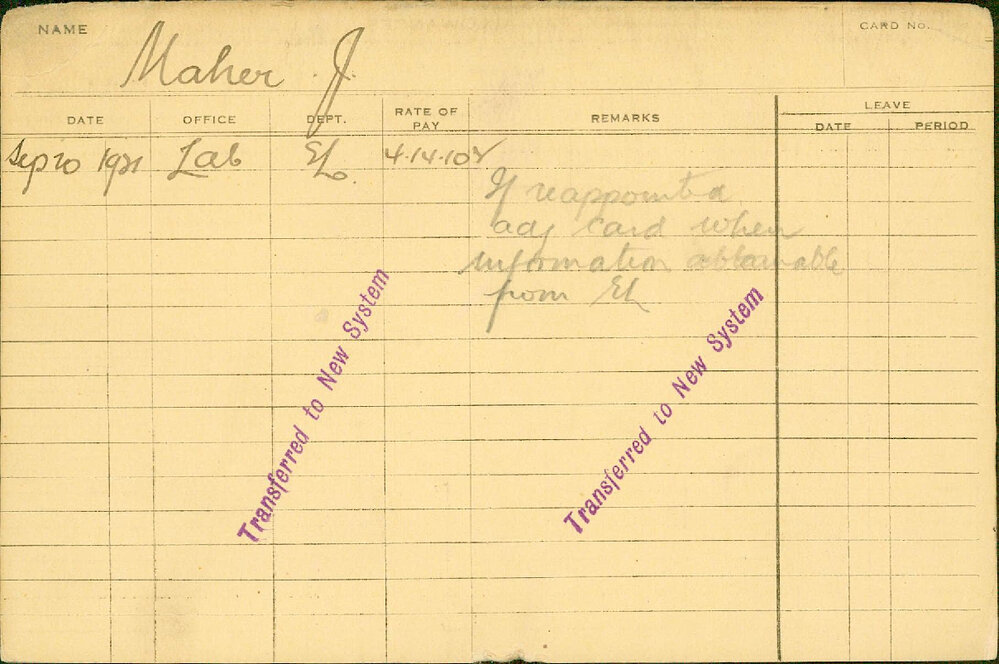 NAME
Maher J.
CARD No.
DATE OFFICE DEPT. RATE OF PAY REMARKS LEAVE
DATE PERIOD
Sep 20 1921 Lab EL. 4.14.10
If reappointed
adj card when
information obtainable
from EL
Transferred to New System
Transferred to New System